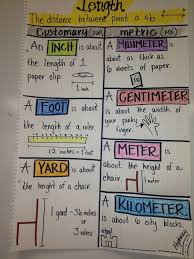 Length
The distance between point a & b
Customary
metric
An INCH is about
the length of 1
paper clip
A FOOT is about
the length of a ruler
12 inches = 1 foot
A YARD is about
the height of a
chair.
1 yard = 36 inches
or 3
A MILLIMETER is
about as thick as
6 sheets of paper.
A CENTIMETER is
about the width of
your pinky
finger.
A METER is
about the height
of a chair.
1 meter
A KILOMETER is
about 6 city blocks.